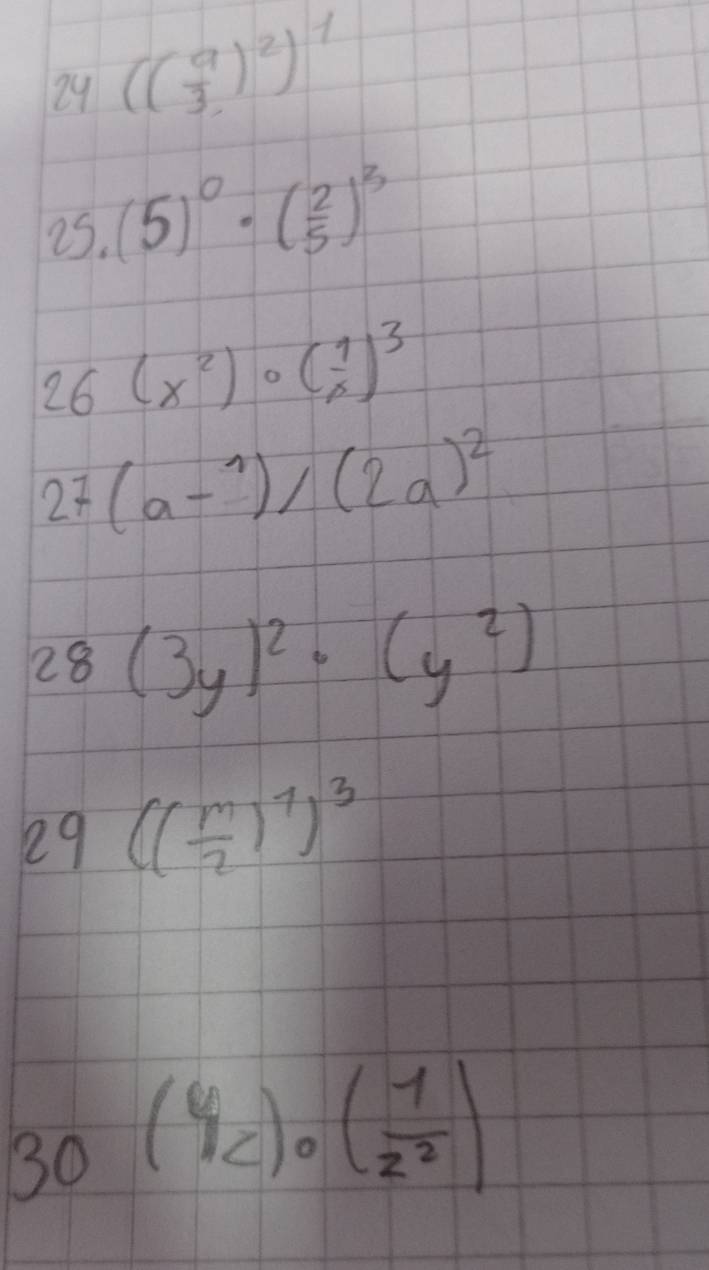 24 ((a/3)²)¹
25. (5)⁰ · (2/5)³
26 (x²) · (1/x)³
27 (a⁻¹) / (2a)²
28 (3y)² · (y²)
29 ((m/2)¹)³
30 (4z) · (1/z²)